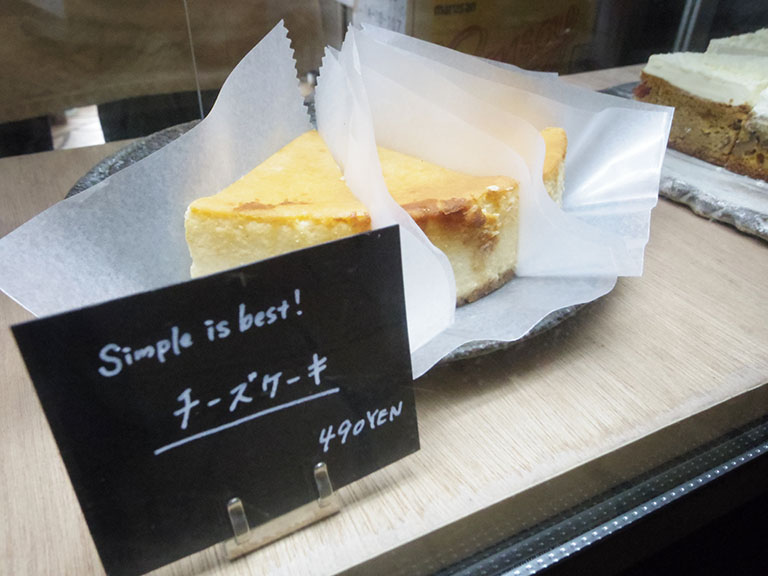 marusan
Simple is best!
チーズケーキ
490YEN